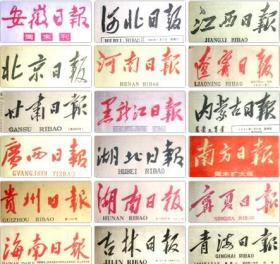 安徽日报
周末刊
河北日报
HEBEI RIBAO
江西日报
JIANGXI RIBAO
北京日报
河南日报
HENAN RIBAO
辽宁日报
LIAONING RIBAO
甘肃日报
GANSU RIBAO
黑龙江日报
内蒙古日报
廣西日報
GVANGJSIH YIZBAO
湖北日报
HUBEI RIBAO
南方日报
周末扩大版
贵州日报
GUIZHOU RIBAO
湖南日报
HUNAN RIBAO
宁夏日报
NINGXIA RIBAO
海南日报
吉林日报
JILIN RIBAO
青海日报
QINGHAI RIBAO